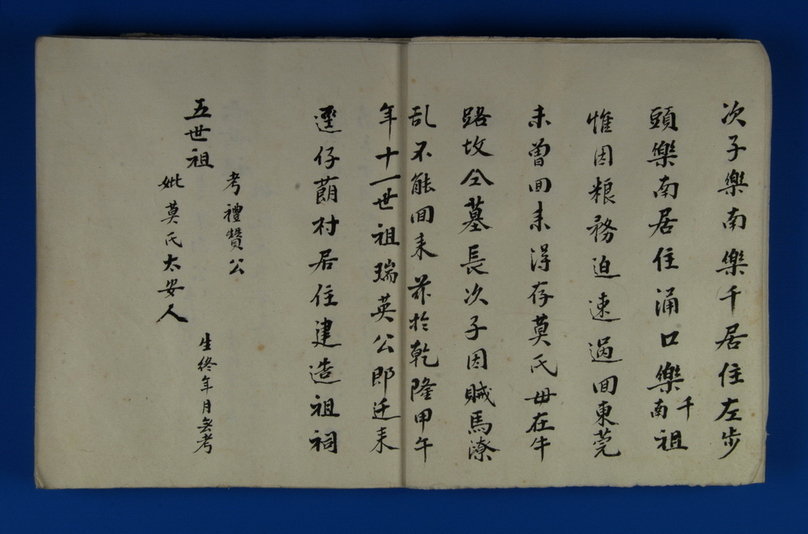 次子樂南樂千居住左步
頭樂南居住涌口樂千南祖
惟因粮務迫速過囬東莞
未曽囬来淂存莫氏毋在牛
路坟仝墓長次子因賊馬潦
乱不能囬来 於乾隆甲午
年十一世祖瑞英公郎迁来
仔蓢村居住建造祖祠
五世祖
考禮贊公
妣莫氏太安人
生終年月無考